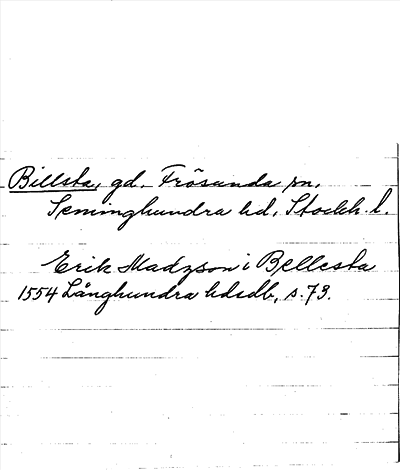 Billsta, gd. Frösunda sn,
Seminghundra hd, Stockh. l.
Erik Madzson i Bellesta
1554 Långhundra hdsdb, s. 73.